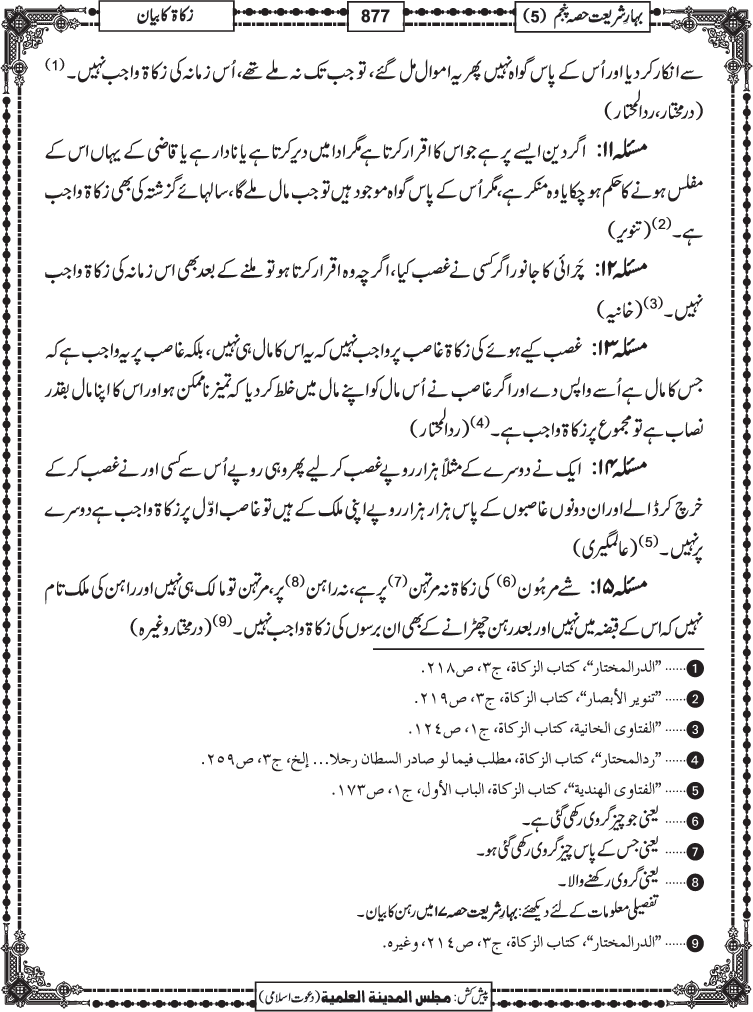 بہارِ شریعت حصہ پنجم (5)
877
زکاۃ کا بیان
سے انکار کر دیا اور اُس کے پاس گواہ نہیں پھر یہ اموال مل گئے، تو جب تک نہ ملے تھے، اُس زمانہ کی زکاۃ واجب نہیں۔ (1)
(درمختار، ردالمحتار)
مسئلہ ۱۱: اگر دین ایسے پر ہے جو اس کا اقرار کرتا ہے مگر ادا میں دیر کرتا ہے یا نادار ہے یا قاضی کے یہاں اس کے
مفلس ہونے کا حکم ہو چکا یا وہ منکر ہے، مگر اُس کے پاس گواہ موجود ہیں تو جب مال ملے گا، سالہائے گزشتہ کی بھی زکاۃ واجب
ہے۔ (2) (تنویر)
مسئلہ ۱۲: چَرائی کا جانور اگر کسی نے غصب کیا، اگرچہ وہ اقرار کرتا ہو تو ملنے کے بعد بھی اس زمانہ کی زکاۃ واجب
نہیں۔ (3) (خانیہ)
مسئلہ ۱۳: غصب کیے ہوئے کی زکاۃ غاصب پر واجب نہیں کہ یہ اس کا مال ہی نہیں، بلکہ غاصب پر یہ واجب ہے کہ
جس کا مال ہے اُسے واپس دے اور اگر غاصب نے اُس مال کو اپنے مال میں خلط کر دیا کہ تمیز ناممکن ہو اور اس کا اپنا مال بقدر
نصاب ہے تو مجموع پر زکاۃ واجب ہے۔ (4) (ردالمحتار)
مسئلہ ۱۴: ایک نے دوسرے کے مثلاً ہزار روپے غصب کر لیے پھر وہی روپے اُس سے کسی اور نے غصب کر کے
خرچ کر ڈالے اور ان دونوں غاصبوں کے پاس ہزار ہزار روپے اپنی ملک کے ہیں تو غاصب اوّل پر زکاۃ واجب ہے دوسرے
پر نہیں۔ (5) (عالمگیری)
مسئلہ ۱۵: شے مرہُون (6) کی زکاۃ نہ مرتہن (7) پر ہے، نہ راہن (8) پر، مرتہن تو مالک ہی نہیں اور راہن کی ملک تام
نہیں کہ اس کے قبضہ میں نہیں اور بعد رہن چھڑانے کے بھی ان برسوں کی زکاۃ واجب نہیں۔ (9) (درمختار وغیرہ)
1 ...... "الدرالمختار"، کتاب الزکاۃ، ج۳، ص۲۱۸.
2 ...... "تنویر الأبصار"، کتاب الزکاۃ، ج۳، ص۲۱۹.
3 ...... "الفتاوی الخانیة"، کتاب الزکاۃ، ج۱، ص۱۲٤.
4 ...... "ردالمحتار"، کتاب الزکاۃ، مطلب فیما لو صادر السطان رجلا... إلخ، ج۳، ص۲۵۹.
5 ...... "الفتاوی الهندیة"، کتاب الزکاۃ، الباب الأول، ج۱، ص۱۷۳.
6 ...... یعنی جو چیز گروی رکھی گئی ہے۔
7 ...... یعنی جس کے پاس چیز گروی رکھی گئی ہو۔
8 ...... یعنی گروی رکھنے والا۔
تفصیلی معلومات کے لئے دیکھئے: بہارِ شریعت حصہ ۱۷ میں رہن کا بیان۔
9 ...... "الدرالمختار"، کتاب الزکاۃ، ج۳، ص۲۱٤، وغیرہ.
پیش کش: مجلس المدینة العلمیة (دعوت اسلامی)